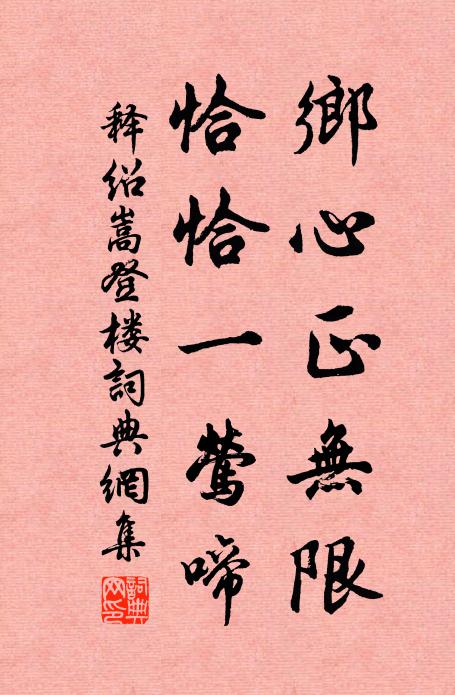 鄉心正無限
恰恰一鶯啼
释绍嵩登楼詞典網集
詞典网印